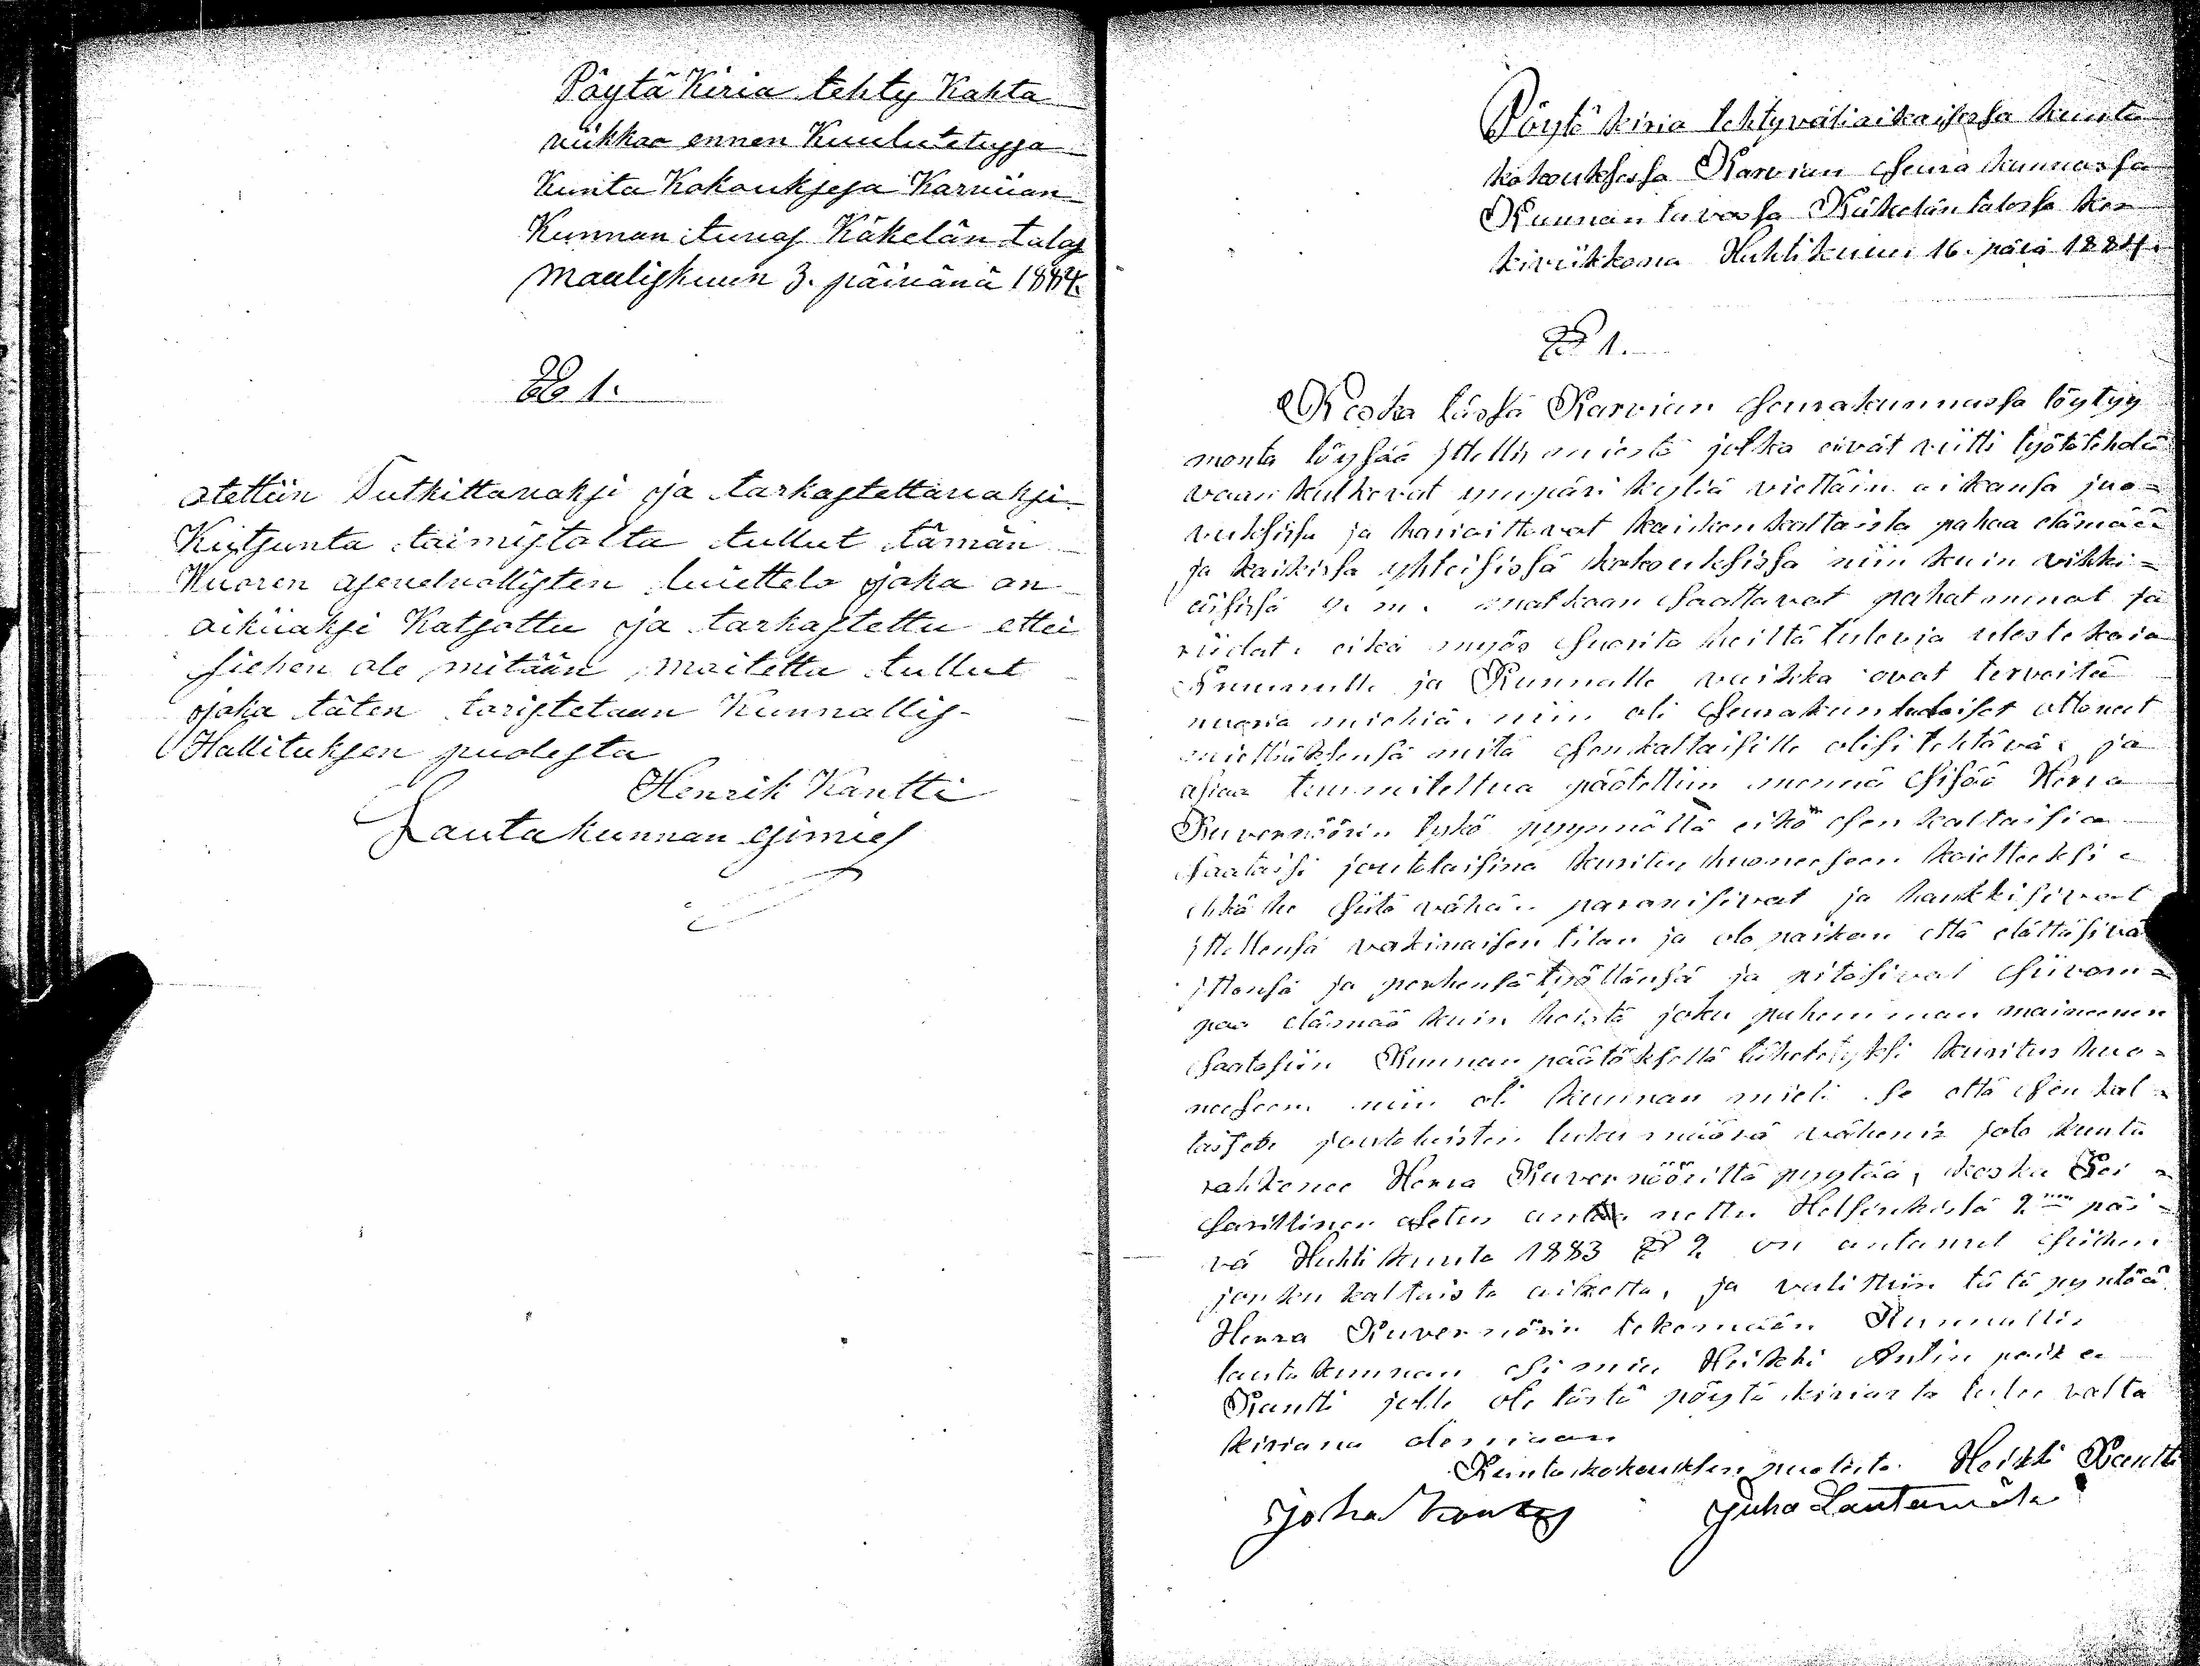 Pöytä Kiria tehty Kahta
viikkao ennen Kuulutetussa
Kunta Kokouksesa Karviian
Kunnan tuvas Käkelän talos
Maaliskuun 3. päivänä 1884.
§ 1.
otettiin Tutkittavaksi ja tarkastettavaksi
Kutsunta toimistolta tullut tämän
Vuoren asevelvollisten luettelo joka on
oikiiaksi Katsottu ja tarkastettu ettei
siehen ole mitään moitetta tullut
joka täten toristetaan Kunnallis-
Hallituksen puolesta
Henrik Kantti
Lautakunnan esimies
Pöytä kiria tehty väliaikaisessa kunta
kokouksessa Karvian Seurakunnassa
Kunnan tuvassa Käkelän talossa kes
kiviikkona Huhtikuun 16. päiä 1884.
§ 1.
Koska tässä Karvian Seurakunnassa löytyy
monta löysää jttellis miestä jotka eivät viitti työtä tehdä
vaan kulkevat ympäri kyliä viettäin aikansa juo=
vuksissa ja harioittavat kaikenkaltaista pahaa elämää
ja kaikissa yhteisissä kokouksissa niin kuin vihki=
äisissä y. m. matkaan saattavat pahat menot ja
riidat. eikä myös Suorita heiltä tulevia ulostekoia
Kruunulle ja Kunnalle vaikka ovat terveitä
nuoria miehiä. niin oli Seurakuntalaiset ottaneet
miettiäksensä mitä Senkaltaisille olisi tehtävä. ja
asiaa tuumiteltua päätettiin mennä Sisää Herra
Kuvernöörin tykö pyynnöllä eikö Sen kaltaisia
Saataisi joutolaisina kuritus huoneeseen koietteeksi
ehkä he Siitä vähän paranisivat ja hankkisivat
jttellensä vakinaisen tilan ja olo paikan että elättäsivä
jttensä ja perhensä työllänsä ja pitäsivat Siivom=
paa elämää kuin heistä joku puhemman maineenen
Saatasiin Kunnan päätöksellä lähetetyksi kuritus huo=
neeseen. niin oli kunnan mieli. se että Sen kal=
taisete joutolaisten luku määrä vähenis jota kunta
rahkenee Herra Kuvernöörittä pyytää, koska Kei=
Sarillinen asetus annettu Helsinkistä 2 päi=
vä Huhtikuuta 1883 § 2 on antanut Siihen
jonkun kaltaista aihetta, ja valittiin tätä pyntöä
Herra Kuvernörin tekemään Kunnallis
lautakunnan Esimies Heikki Antin poika
Kantti jolle ote tästä pöytäkiriasta tulee valta
kiriana olemaan
Kuntakokouksen puolesta. Heikki Kantti
Juha Lautamäki